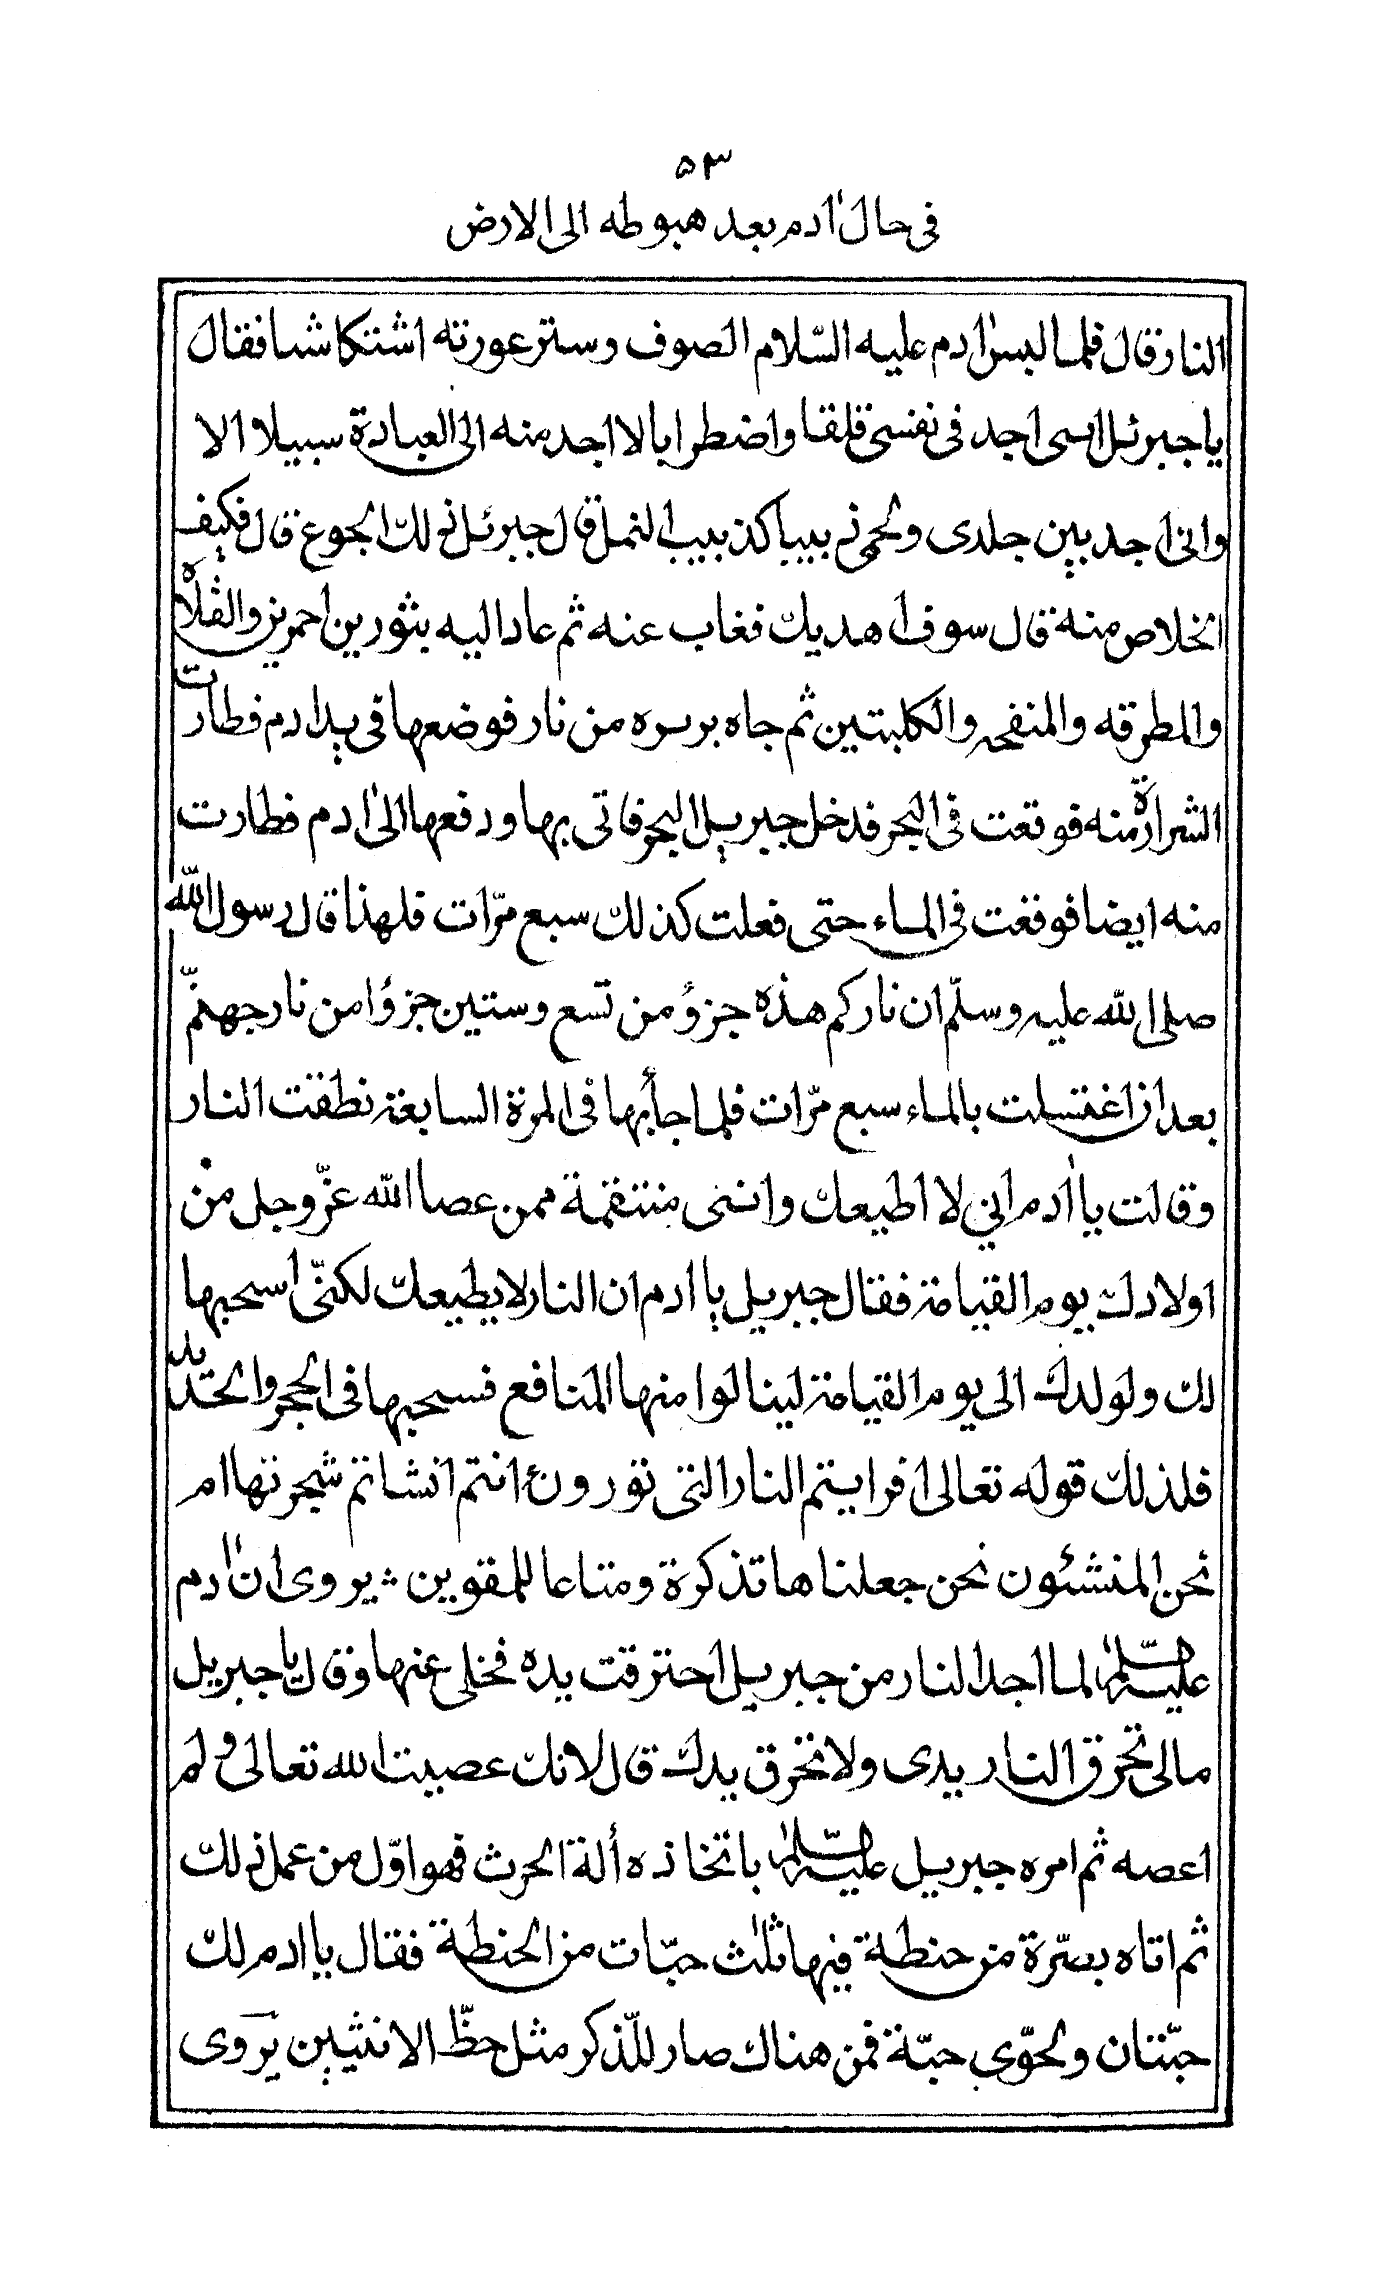 ۵۳
فى حال اٰدم بعد هبوطه الى الارض
النار قال فلما لبس اٰدم عليه السّلام الصوف وستر عورته اشتكا شيا فقال
يا جبرئل اجد فى نفسى قلقا واضطرابا لا اجد منه الى العبادة سبيلا الا
وانى اجد بين جلدى ولحمى دبيبا كدبيب النمل قال جبرئل ذلك الجوع قال فكيف
الخلاص منه قال سوف اهديك فغاب عنه ثم عاد اليه بثورين احمرين والقلاة
والمطرقه والمنفحه والكلبتين ثم جاه بشرره من نار فوضعها فى يد ادم فطارت
الشرارة منه فوقعت فى البحر فدخل جبريل البحر فاتى بها ودفعها الىٰ ادم فطارت
منه ايضا فوقعت فى الماء حتى فعلت كذلك سبع مرّات فلهذا قال رسول الله
صلى الله عليه وسلّم ان ناركم هذه جزؤ من تسع وستين جزؤا من نار جهنّم
بعد ان اغتسلت بالماء سبع مرّات فلما جأبها فى المرة السابعة نطقت النار
وقالت يا اٰدم انى لا اطيعك واننى منتقمة ممن عصا الله عزّ وجل من
اولادك يوم القيامة فقال جبريل يا ادم ان النار لا يطيعك لكنّى اسحبها
لك ولولدك الى يوم القيامة لينالوا منها المنافع فسحبها فى الحجر والحديد
فلذلك قوله تعالى افرايتم النار التى تورون ءانتم انشاتم شجرتها ام
نحن المنشئون نحن جعلناها تذكرة ومتاعا للمقوين ؞ يروى ان اٰدم
عليه السّلام لما اجد النار من جبريل احترقت يده فخلى عنها وقال يا جبريل
مالى تحرق النار يدى ولا تحرق يدك قال لانك عصيت الله تعالى ولم
اعصه ثم امره جبريل عليه السّلام باتخاذه ألة الحرث فهو اوّل من عمل ذلك
ثم اتاه بصّرة من حنطة فيها ثلٰث حبّات من الحنطة فقال يا ادم لك
حبّتان ولحوّى حبّة فمن هناك صار للّذكر مثل حظّ الانثيين يروى